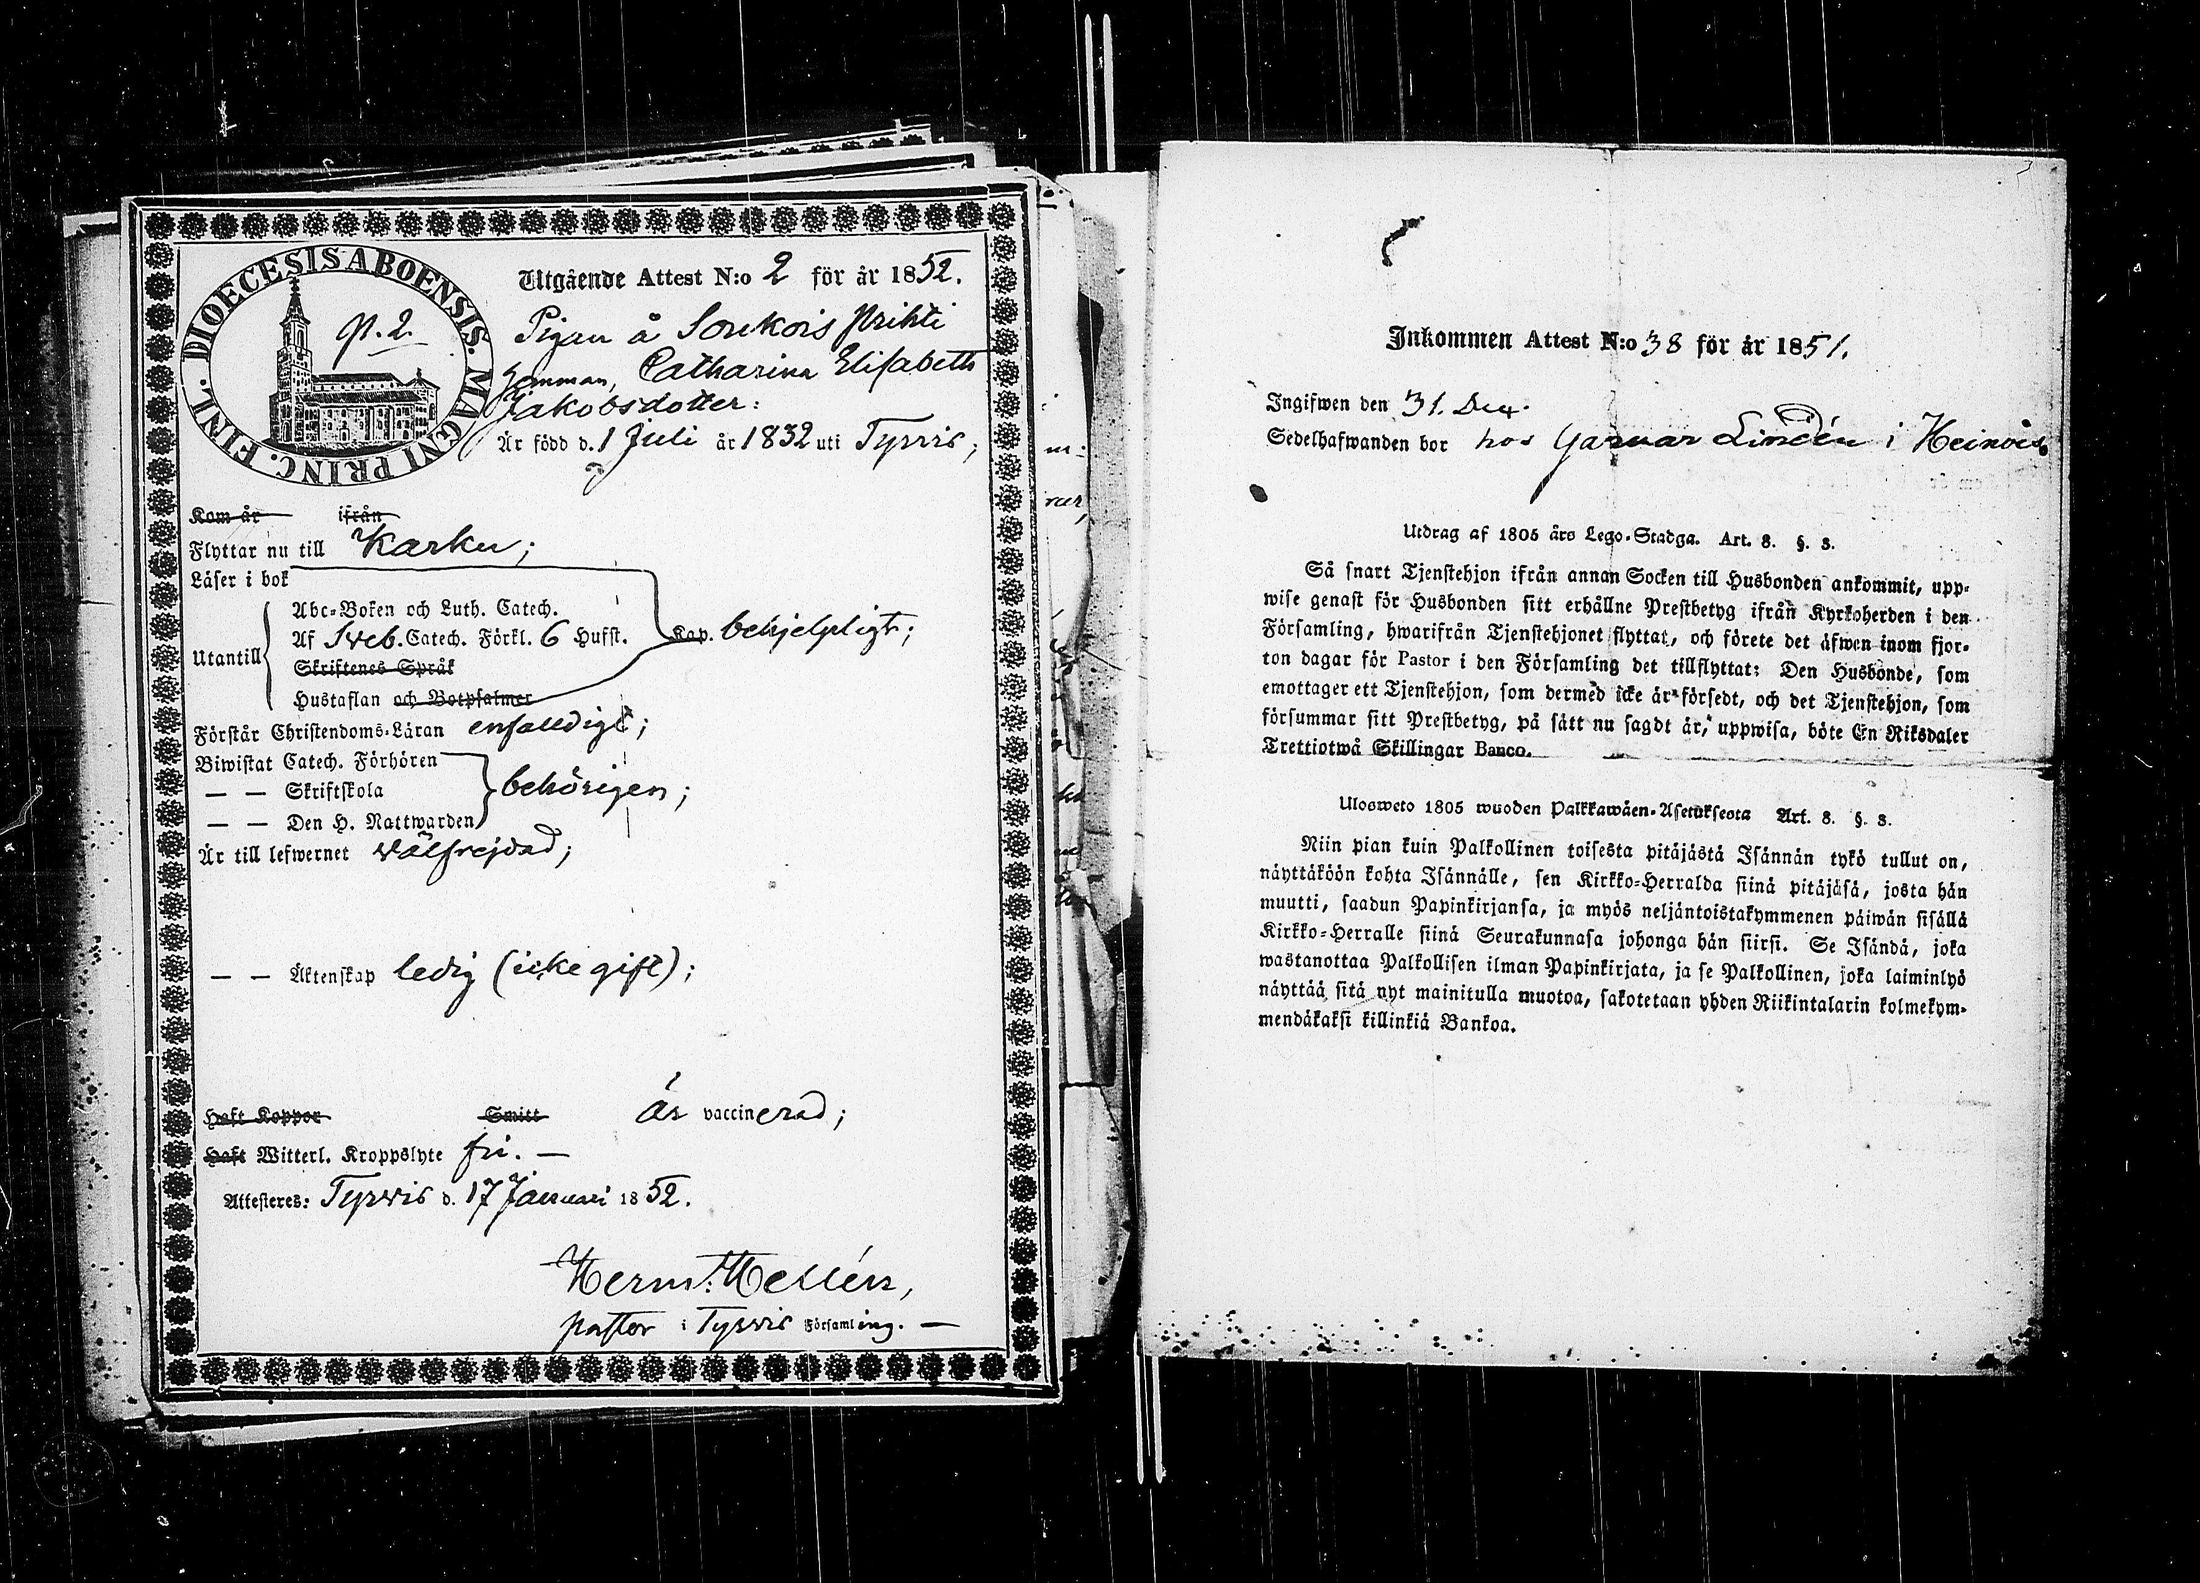 DIOECESIS ABOENSIS. MAGNI PRINC. FINL.
p. 2.
Utgående Attest N:o 2 för år 1852.
Pigan å Soukois Prihti
hemman, Catharina Elisabeth
Jakobsdotter:
Är född d. 1 Juli år 1832 uti Tyrvis;
Kom år ifrån
Flyttar nu till Karku;
Läser i bok
Utantill
Abc-Boken och Luth. Catech.
Af Sveb. Catech. Förkl. 6 Hufst. Kap. behjelpligt;
Skriftenes Språk
Hustaflan och Botpsalmer
Förstår Christendoms-Läran enfalldigt;
Biwistat Catech. Förhören
— — Skriftskola behörigen;
— — Den H. Nattwarden
Är till lefwernet välfrejdad;
— — Äktenskap ledig (icke gift);
Haft Koppor Smitt är vaccinerad;
Haft Witterl. Kroppslyte fri. —
Attesteres: Tyrvis d. 17 Januari 1852.
Herm. Hellén,
pastor i Tyrvis Församling. —
Inkommen Attest N:o 38 för år 1851.
Ingifwen den 31. Dec.
Sedelhafwanden bor hos Garvar Lindén i Heinois
Utdrag af 1805 års Lego-Stadga. Art. 8. §. 3.
Så snart Tjenstehjon ifrån annan Socken till Husbonden ankommit, upp-
wise genast för Husbonden sitt erhållne Prestbetyg ifrån Kyrkoherden i den
Församling, hwarifrån Tjenstehjonet flyttat, och förete det äfwen inom fjor-
ton dagar för Pastor i den Församling det tillflyttat: Den Husbonde, som
emottager ett Tjenstehjon, som dermed icke är försedt, och det Tjenstehjon, som
försummar sitt Prestbetyg, på sätt nu sagdt är, uppwisa, böte En Riksdaler
Trettiotwå Skillingar Banco.
Ulosweto 1805 wuoden Palkkawäen-Asetuksesta Art. 8. §. 3.
Niin pian kuin Palkollinen toisesta pitäjästä Isännän tykö tullut on,
näyttäköön kohta Isännälle, sen Kirkko-Herralda siinä pitäjäsä, josta hän
muutti, saadun Papinkirjansa, ja myös neljäntoistakymmenen päiwän sisällä
Kirkko-Herralle siinä Seurakunnasa johonga hän siirsi. Se Isändä, joka
wastanottaa Palkollisen ilman Papinkirjata, ja se Palkollinen, joka laiminlyö
näyttää sitä nyt mainitulla muotoa, sakotetaan yhden Riikintalarin kolmekym-
mendäkaksi killinkiä Bankoa.